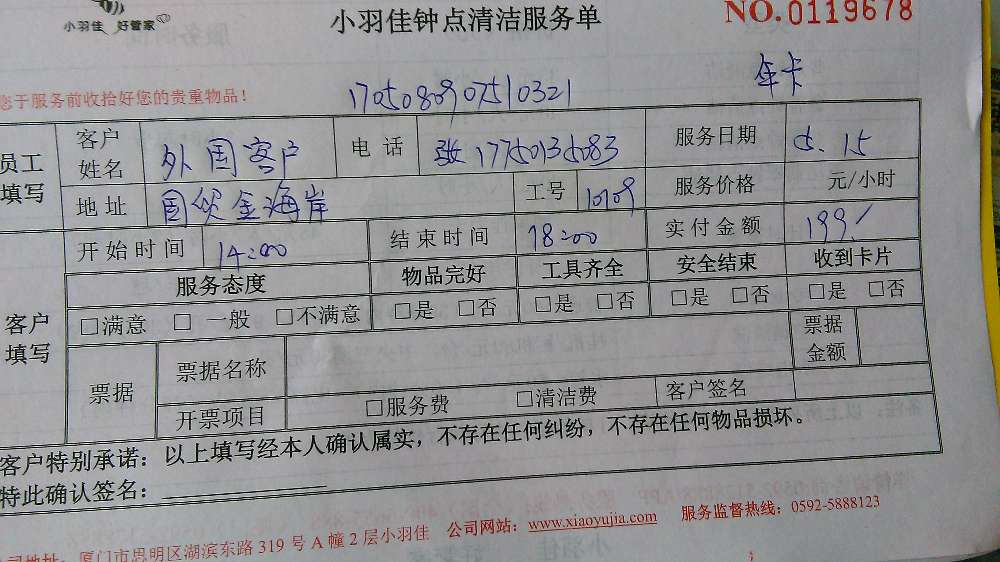 小羽佳 好管家
小羽佳钟点清洁服务单
NO.0119678
年卡
您于服务前收拾好您的贵重物品!
170508090751032​1
员工填写 客户姓名 外国客户 电话 张 17750135083 服务日期 5.15
地址 国贸金海岸 工号 10109 服务价格 元/小时
开始时间 14:00 结束时间 18:00 实付金额 199/
客户填写 服务态度 物品完好 工具齐全 安全结束 收到卡片
□满意 □一般 □不满意 □是 □否 □是 □否 □是 □否 □是 □否
票据 票据名称 票据金额
开票项目 □服务费 □清洁费 客户签名
客户特别承诺：以上填写经本人确认属实，不存在任何纠纷，不存在任何物品损坏。
特此确认签名：
公司地址：厦门市思明区湖滨东路 319 号 A 幢 2 层小羽佳 公司网站：www.xiaoyujia.com 服务监督热线：0592-5888123